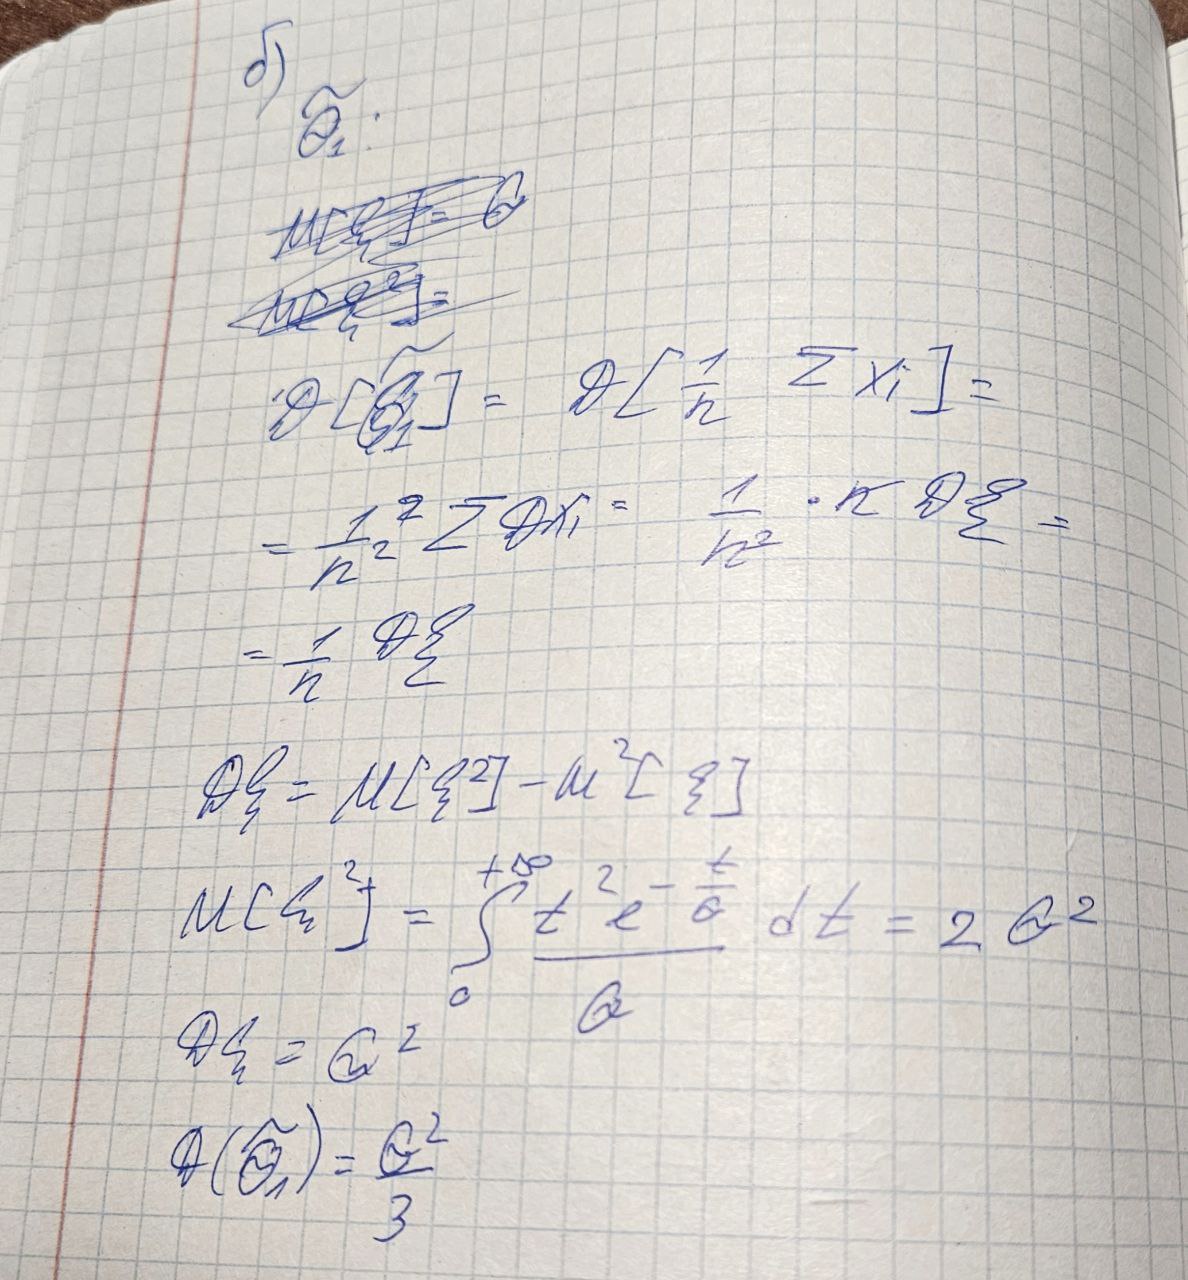 б)
θ̃₁:
M[ξ] = θ
M[ξ²] =
D[θ̃₁] = D[1/n Σ Xi] =
= 1/n² Σ DXi = 1/n² · n Dξ =
= 1/n Dξ
Dξ = M[ξ²] - M²[ξ]
M[ξ²] = ∫₀^{+∞} (t² e^{-t/θ})/θ dt = 2θ²
Dξ = θ²
D(θ̃₁) = θ²/3